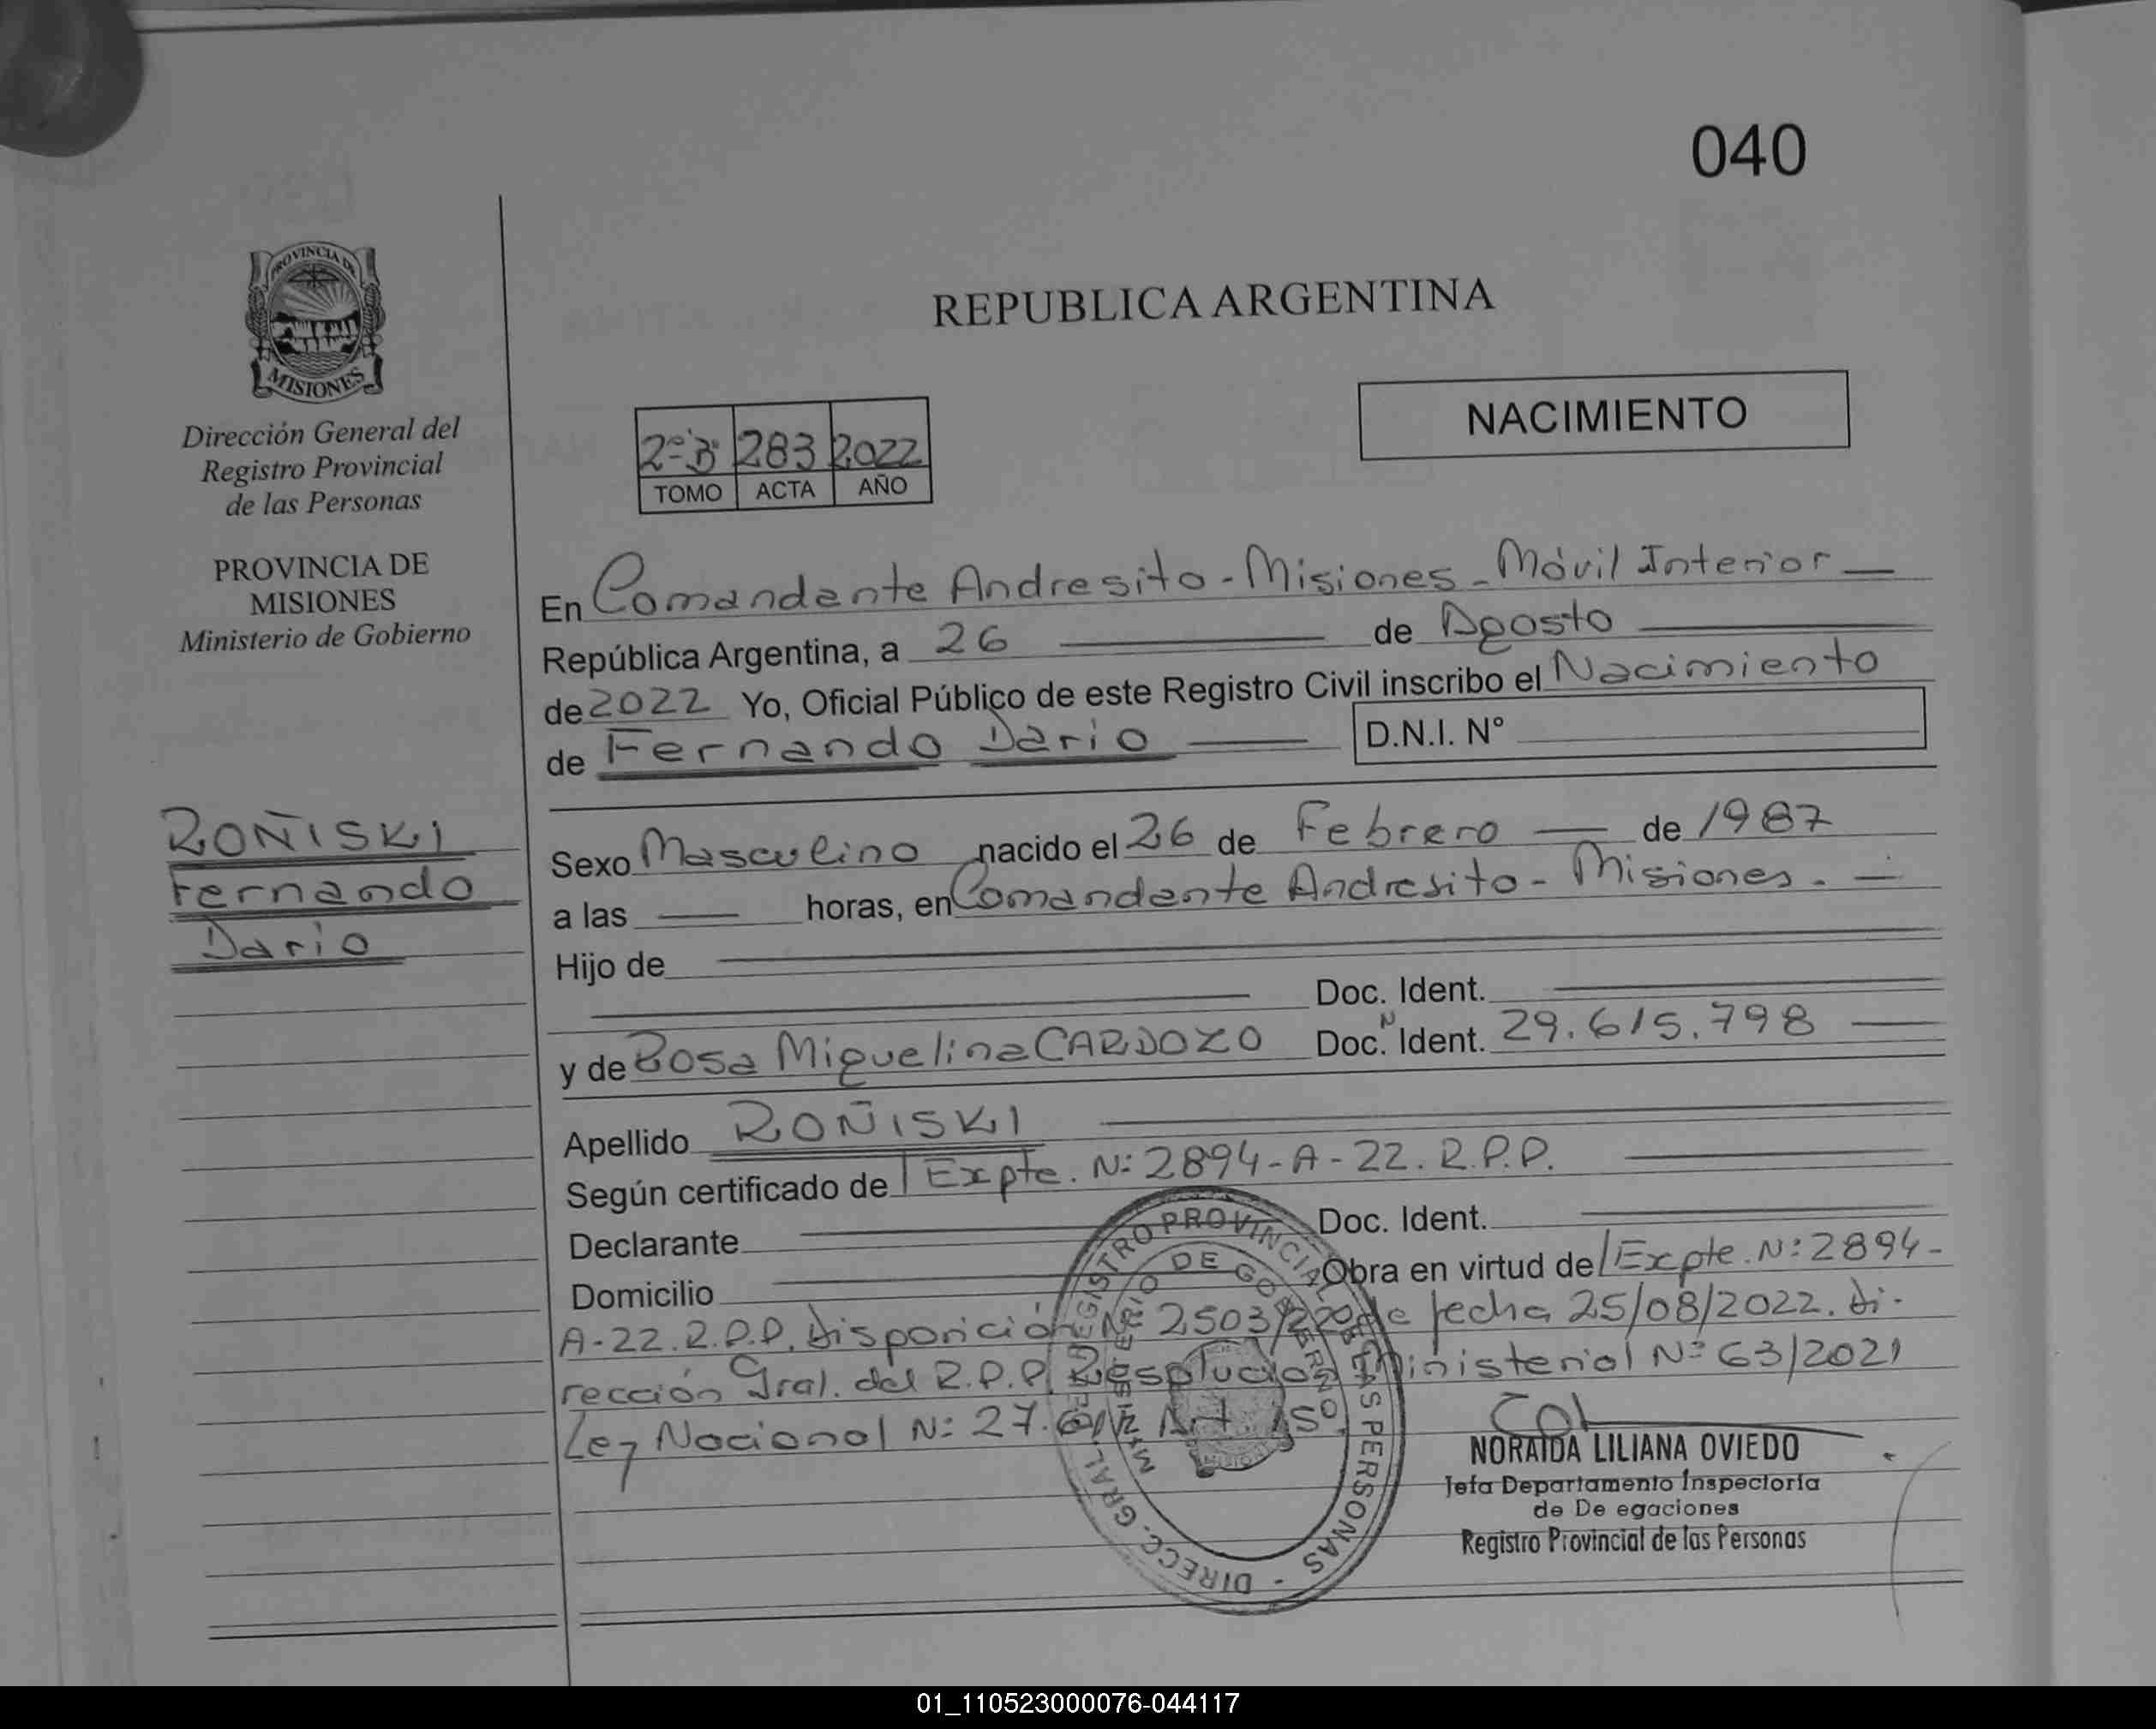 040
PROVINCIA DE
MISIONES
Dirección General del
Registro Provincial
de las Personas
PROVINCIA DE
MISIONES
Ministerio de Gobierno
ROÑISKI
Fernando
Dario
REPUBLICA ARGENTINA
NACIMIENTO
2º"B" 283 2022
TOMO ACTA AÑO
En Comandante Andresito - Misiones - Móvil Interior —
República Argentina, a 26 — de Agosto —
de 2022 Yo, Oficial Público de este Registro Civil inscribo el Nacimiento
de Fernando Dario — D.N.I. Nº
Sexo Masculino nacido el 26 de Febrero — de 1987
a las — horas, en Comandante Andresito - Misiones. —
Hijo de —
— Doc. Ident. —
y de Rosa Miguelina CARDOZO Doc. N Ident. 29.615.798 —
Apellido ROÑISKI —
Según certificado de Expte. Nº: 2894-A-22. R.P.P. —
Declarante — Doc. Ident. —
Domicilio — Obra en virtud de Expte. Nº: 2894-
A-22. R.P.P. Disposición Nº 2503/22 de fecha 25/08/2022. Di-
rección Gral. del R.P.P. Resolución Ministerial Nº 63/2021
Ley Nacional Nº: 27.611 Art. 5º
DIRECC. GRAL. REGISTRO PROVINCIAL DE LAS PERSONAS -
MINISTERIO DE GOBIERNO
MISIONES
NORAIDA LILIANA OVIEDO
Jefa Departamento Inspectoría
de De egaciones
Registro Provincial de las Personas
01_110523000076-044117